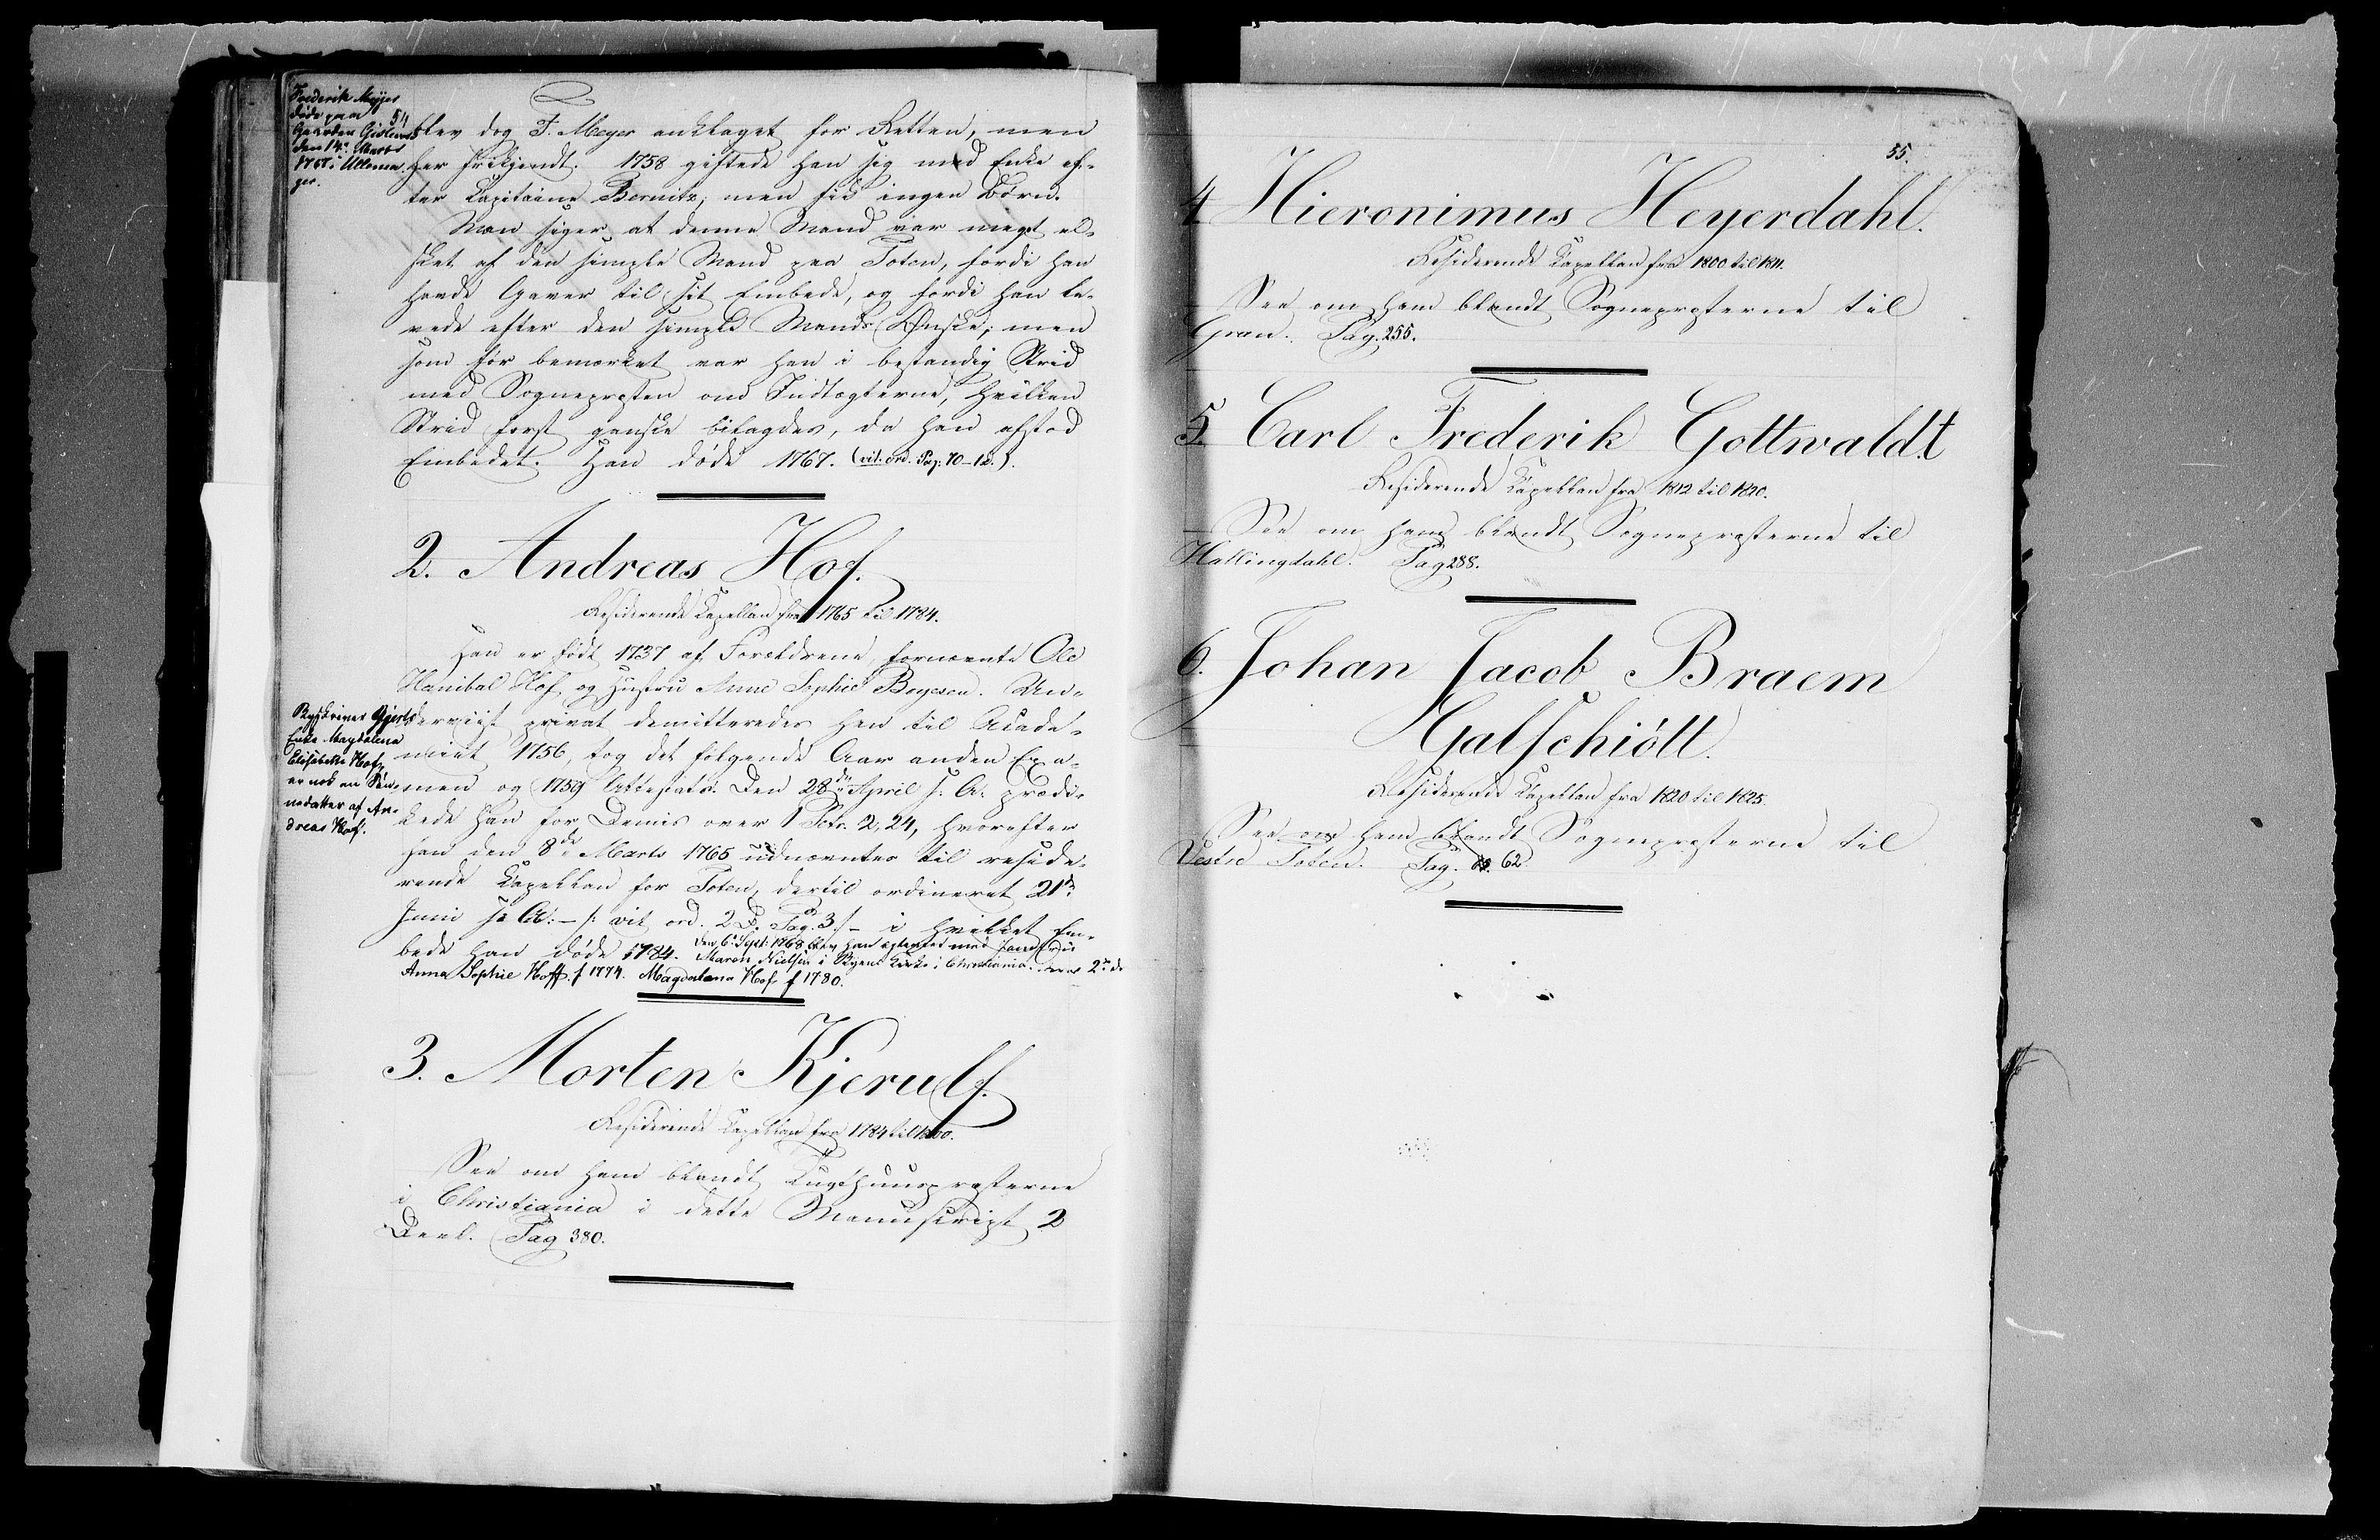 Frederik Meyer
døde paa
Gaarden
den 14de Marts
1767 i Ullensa-
ger.
54
blev dog F. Meyer anklaget for Retten, men
her frikjendt. 1758 giftede han sig med Enke ef-
ter Capitaine Bernitz, men fik ingen Børn.
Man siger at denne Mand var meget el-
sket af den simple Mand paa Toten, fordi han
havde Gaver til sit Embede, og fordi han le-
vede efter den simple Mands Ønske; men
som før bemærket var han i bestandig Strid
med Sognepresten om Indtægterne, hvilken
Strid først ganske bilagdes, da han afstod
Embedet. Han døde 1767. (vit. ord. Pag. 70-12.).
2. Andreas Hof.
Residerende Kapellan fra 1765 til 1784.
Han er født 1737 af Forældrene fornævnte Ole
Hanibal Hof, og Hustru Anne Sophie Boyesen. Un-
derviist privat demitteredes han til Acade-
miet 1756, tog det følgende Aar anden Exa-
men og 1759 Attestats. Den 28de April s. A. prædi-
kede han for Demis over 1 Petr. 2,24, hvorefter
han den 8de Marts 1765 udnævntes til reside-
rende Kapellan for Toten, dertil ordineret 21de
Juni s. A. - /: vit. ord. 2 D. Pag. 3 :/ - i hvilket Em-
bede han døde 1784. Den 6te Sept: 1768 blev han egteviet med Jomfrue
Maren Nielsen i Bygens Kirke i Christiania.
Anna Sophie Hoff. f 1774. Magdalena Hof f 1780.
Enke Magdalena
Elisabeth Hof,
er nok en Søn-
nedatter af An-
dreas Hof.
3. Morten Kjerulf.
Residerende Kapellan fra 1784 til 1800.
See om ham blandt Tugthuuspræsterne
i Christiania i dette Manuskript 2
Deel. Pag 380.
55.
4 Hieronimus Heyerdahl.
Residerende Kapellan fra 1800 til 1811.
See om ham blandt Sognepresterne til
Gran. Pag. 255.
5. Carl Frederik Gottwaldt
Residerende Kapellan fra 1812 til 1820.
See om ham blandt Sognepresterne til
Hallingdahl. Pag 288.
6. Johan Jacob Braem
Galschiött.
Residerende Kapellan fra 1820 til 1825.
See om ham blandt Sognepresterne til
Vestre Toten. Pag. 62.